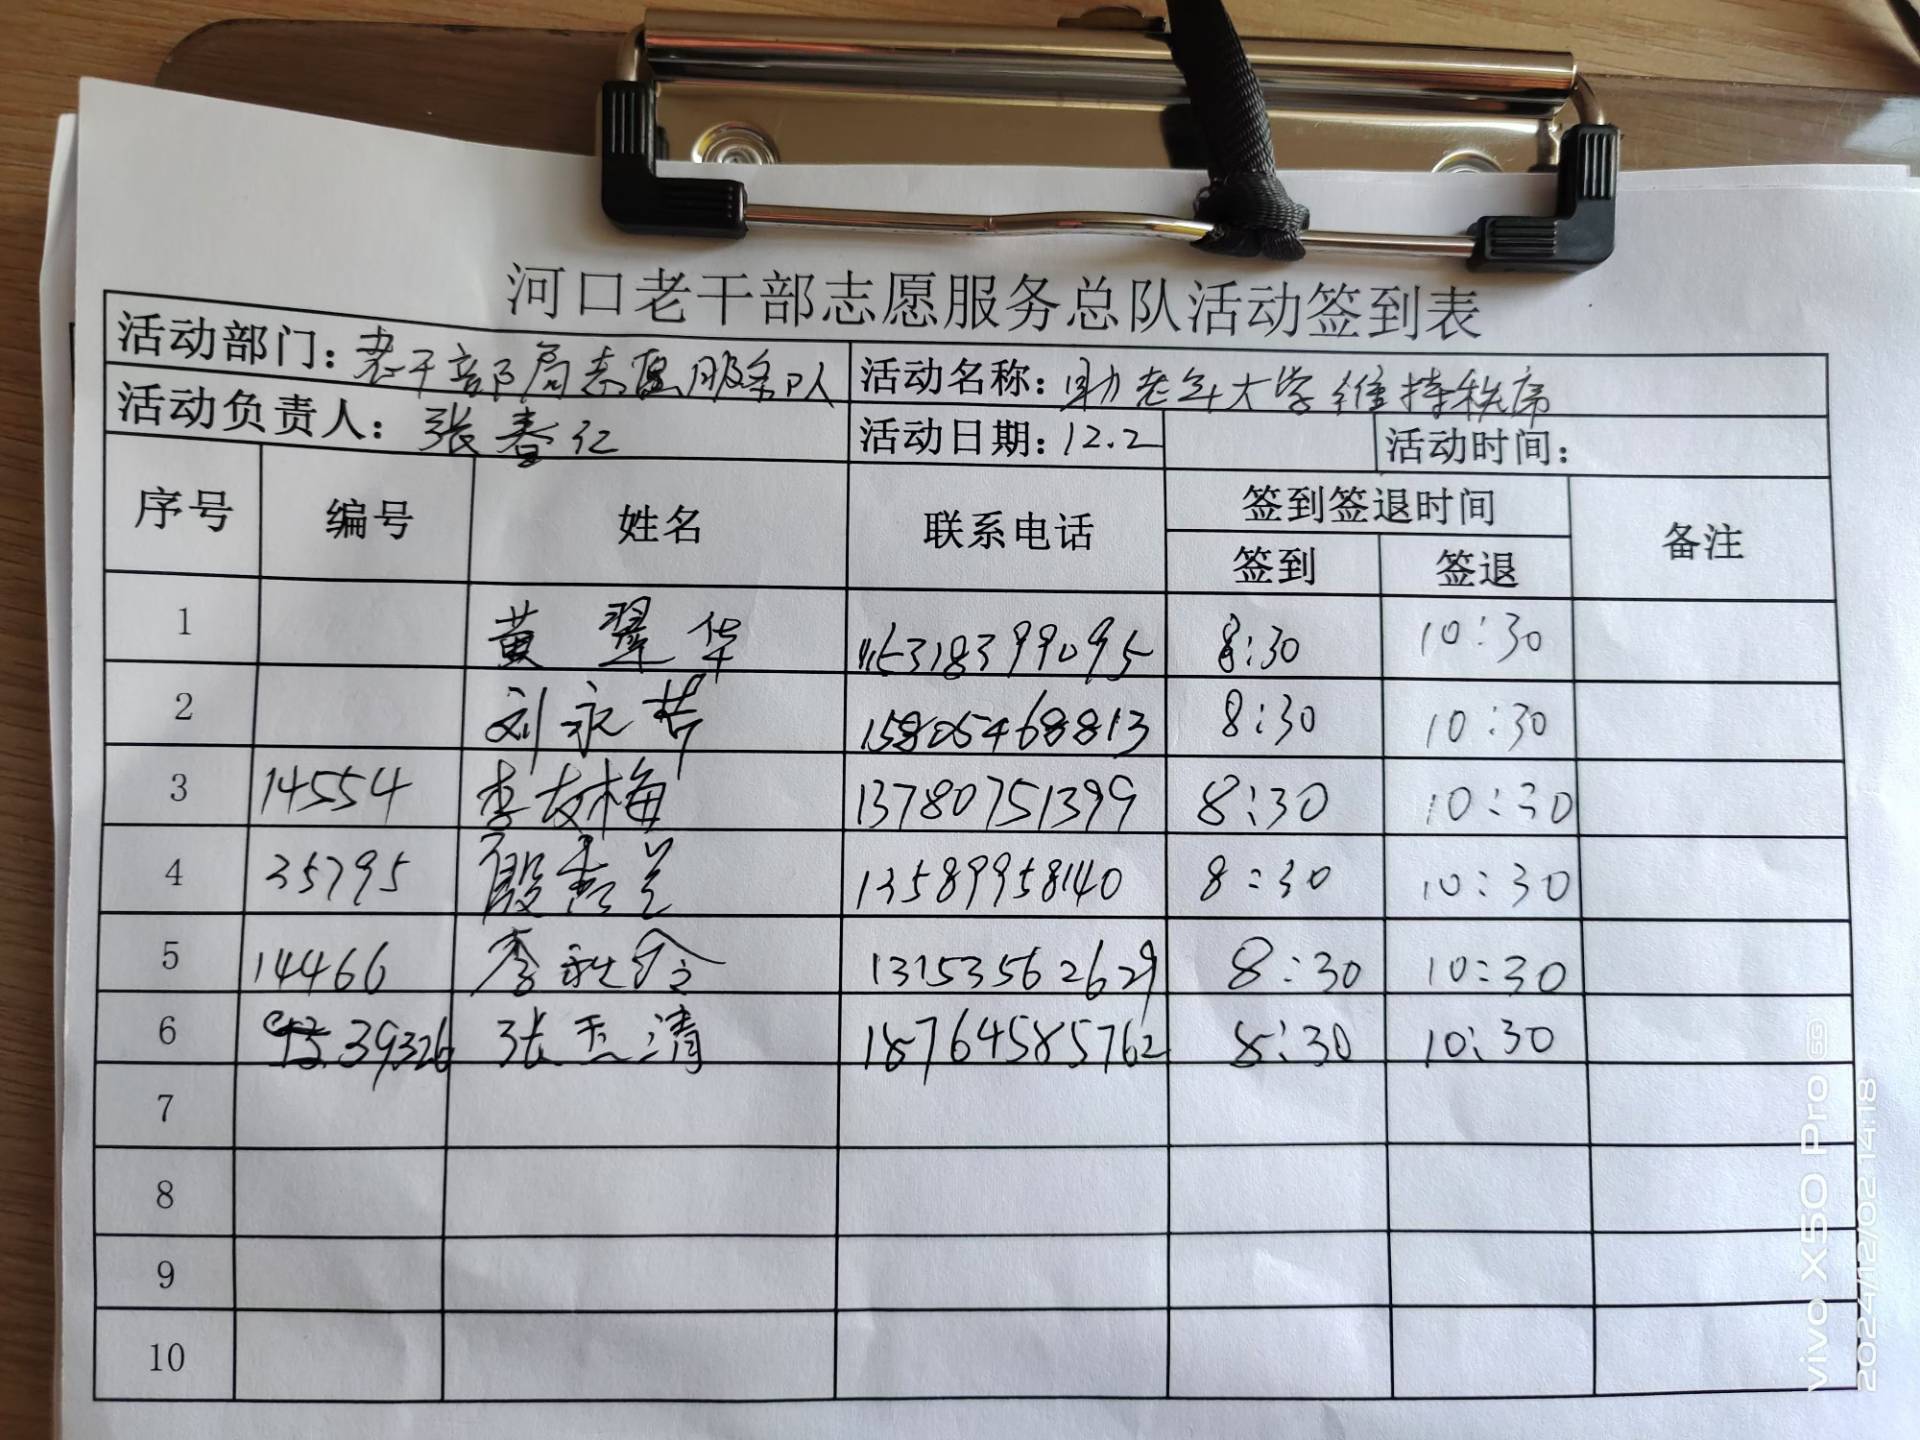 河口老干部志愿服务总队活动签到表
活动部门：老干部局志愿服务队 活动名称：助老年大学维持秩序
活动负责人：张春江 活动日期：12.2 活动时间：
序号 编号 姓名 联系电话 签到签退时间 备注
签到 签退
1 黄翠华 8:30 10:30
2 刘永 15805468813 8:30 10:30
3 14554 李友梅 13780751399 8:30 10:30
4 35795 殷秀兰 13589958140 8:30 10:30
5 14466 李 13153562629 8:30 10:30
6 39326 张 清 18764585762 8:30 10:30
7
8
9
10
vivo X50 Pro 5G
2024/12/02 14:18